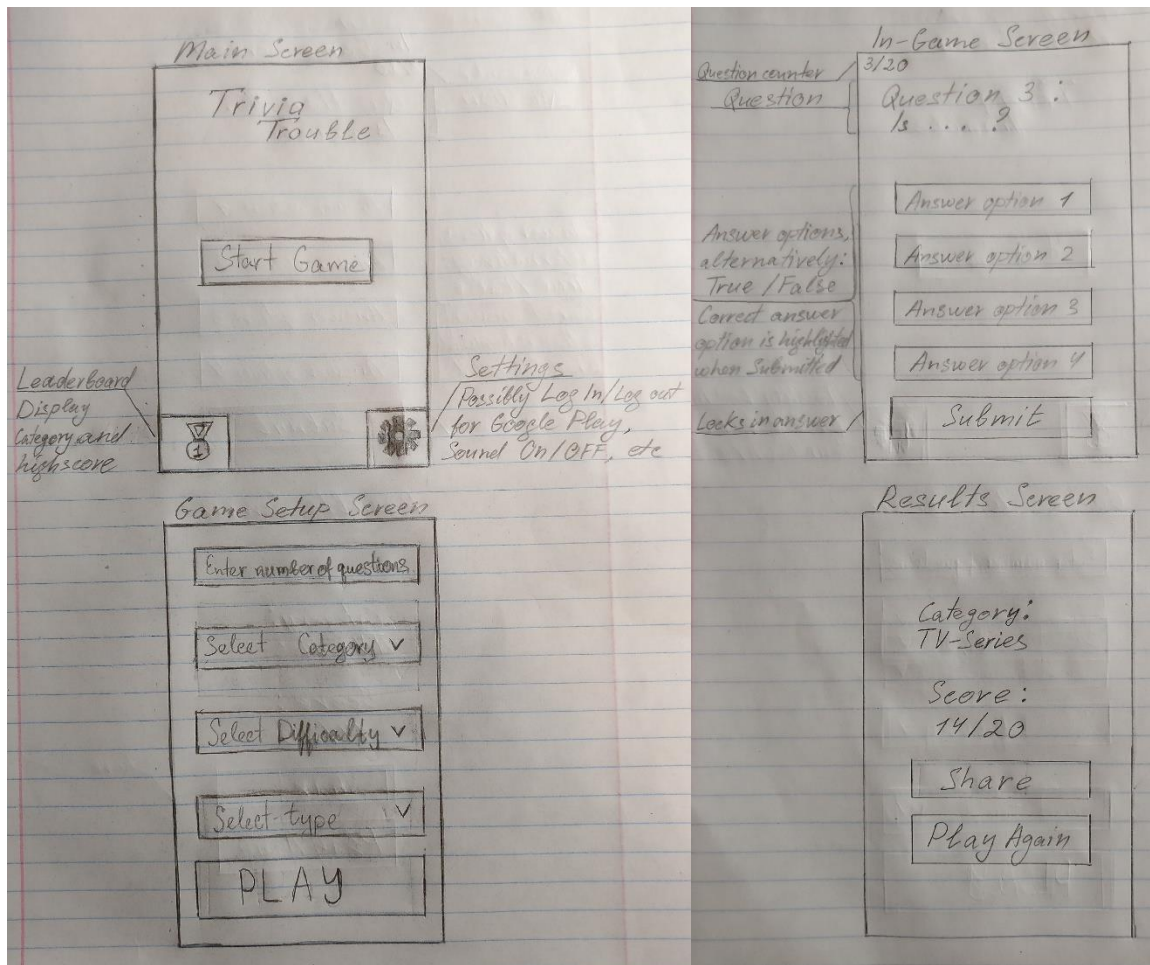 Main Screen
Trivia
Trouble
Start Game
Leaderboard
Display
Category and
highscore
1
Settings
Possibly Log In/Log out
for Google Play,
Sound On/OFF, etc
Game Setup Screen
Enter number of questions
Select Category
Select Difficulty
Select type
PLAY
In-Game Screen
Question counter
3/20
Question
Question 3 :
Is . . . . ?
Answer options,
alternatively:
True / False
Correct answer
option is highlighted
when Submitted
Answer option 1
Answer option 2
Answer option 3
Answer option 4
Locks in answer
Submit
Results Screen
Category:
TV-Series
Score:
14/20
Share
Play Again